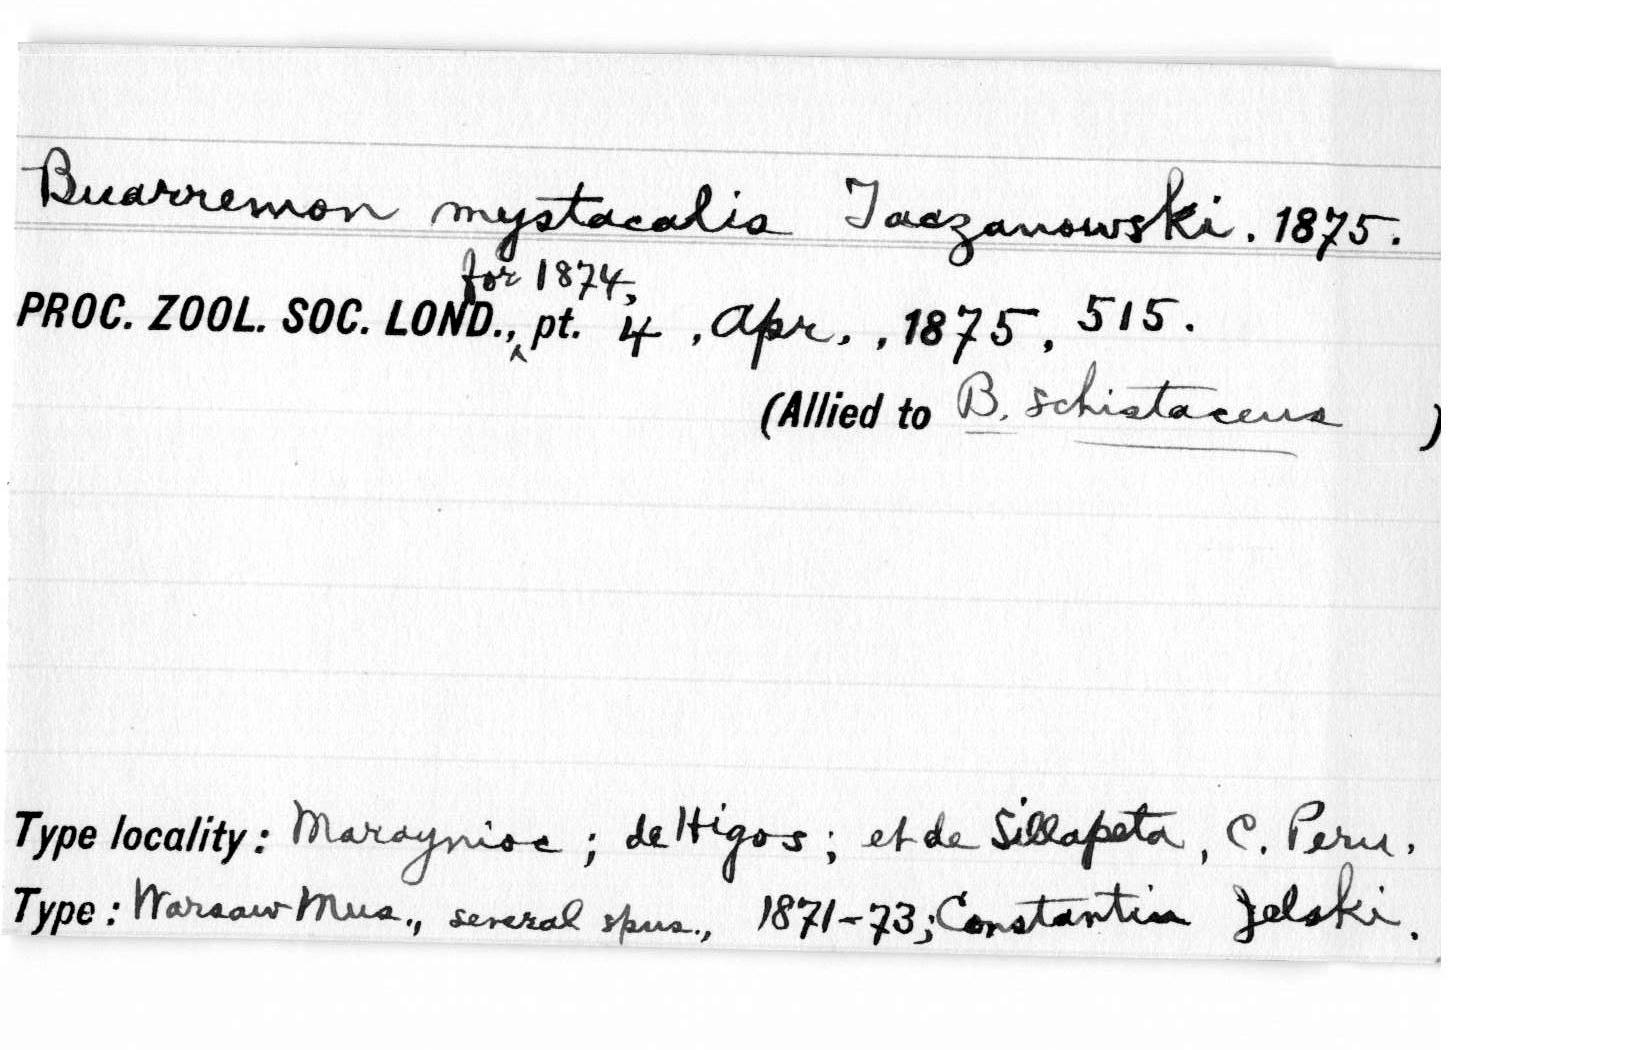 Buarremon mystacalis Taczanowski. 1875.
for 1874,
PROC. ZOOL. SOC. LOND., ^ pt. 4, Apr., , 1875, 515.
(Allied to B. schistaceus )
Type locality: Maraynioc; de Higos; et de Sillapata, C. Peru.
Type: Warsaw Mus., several spns., 1871-73; Constantin Jelski.